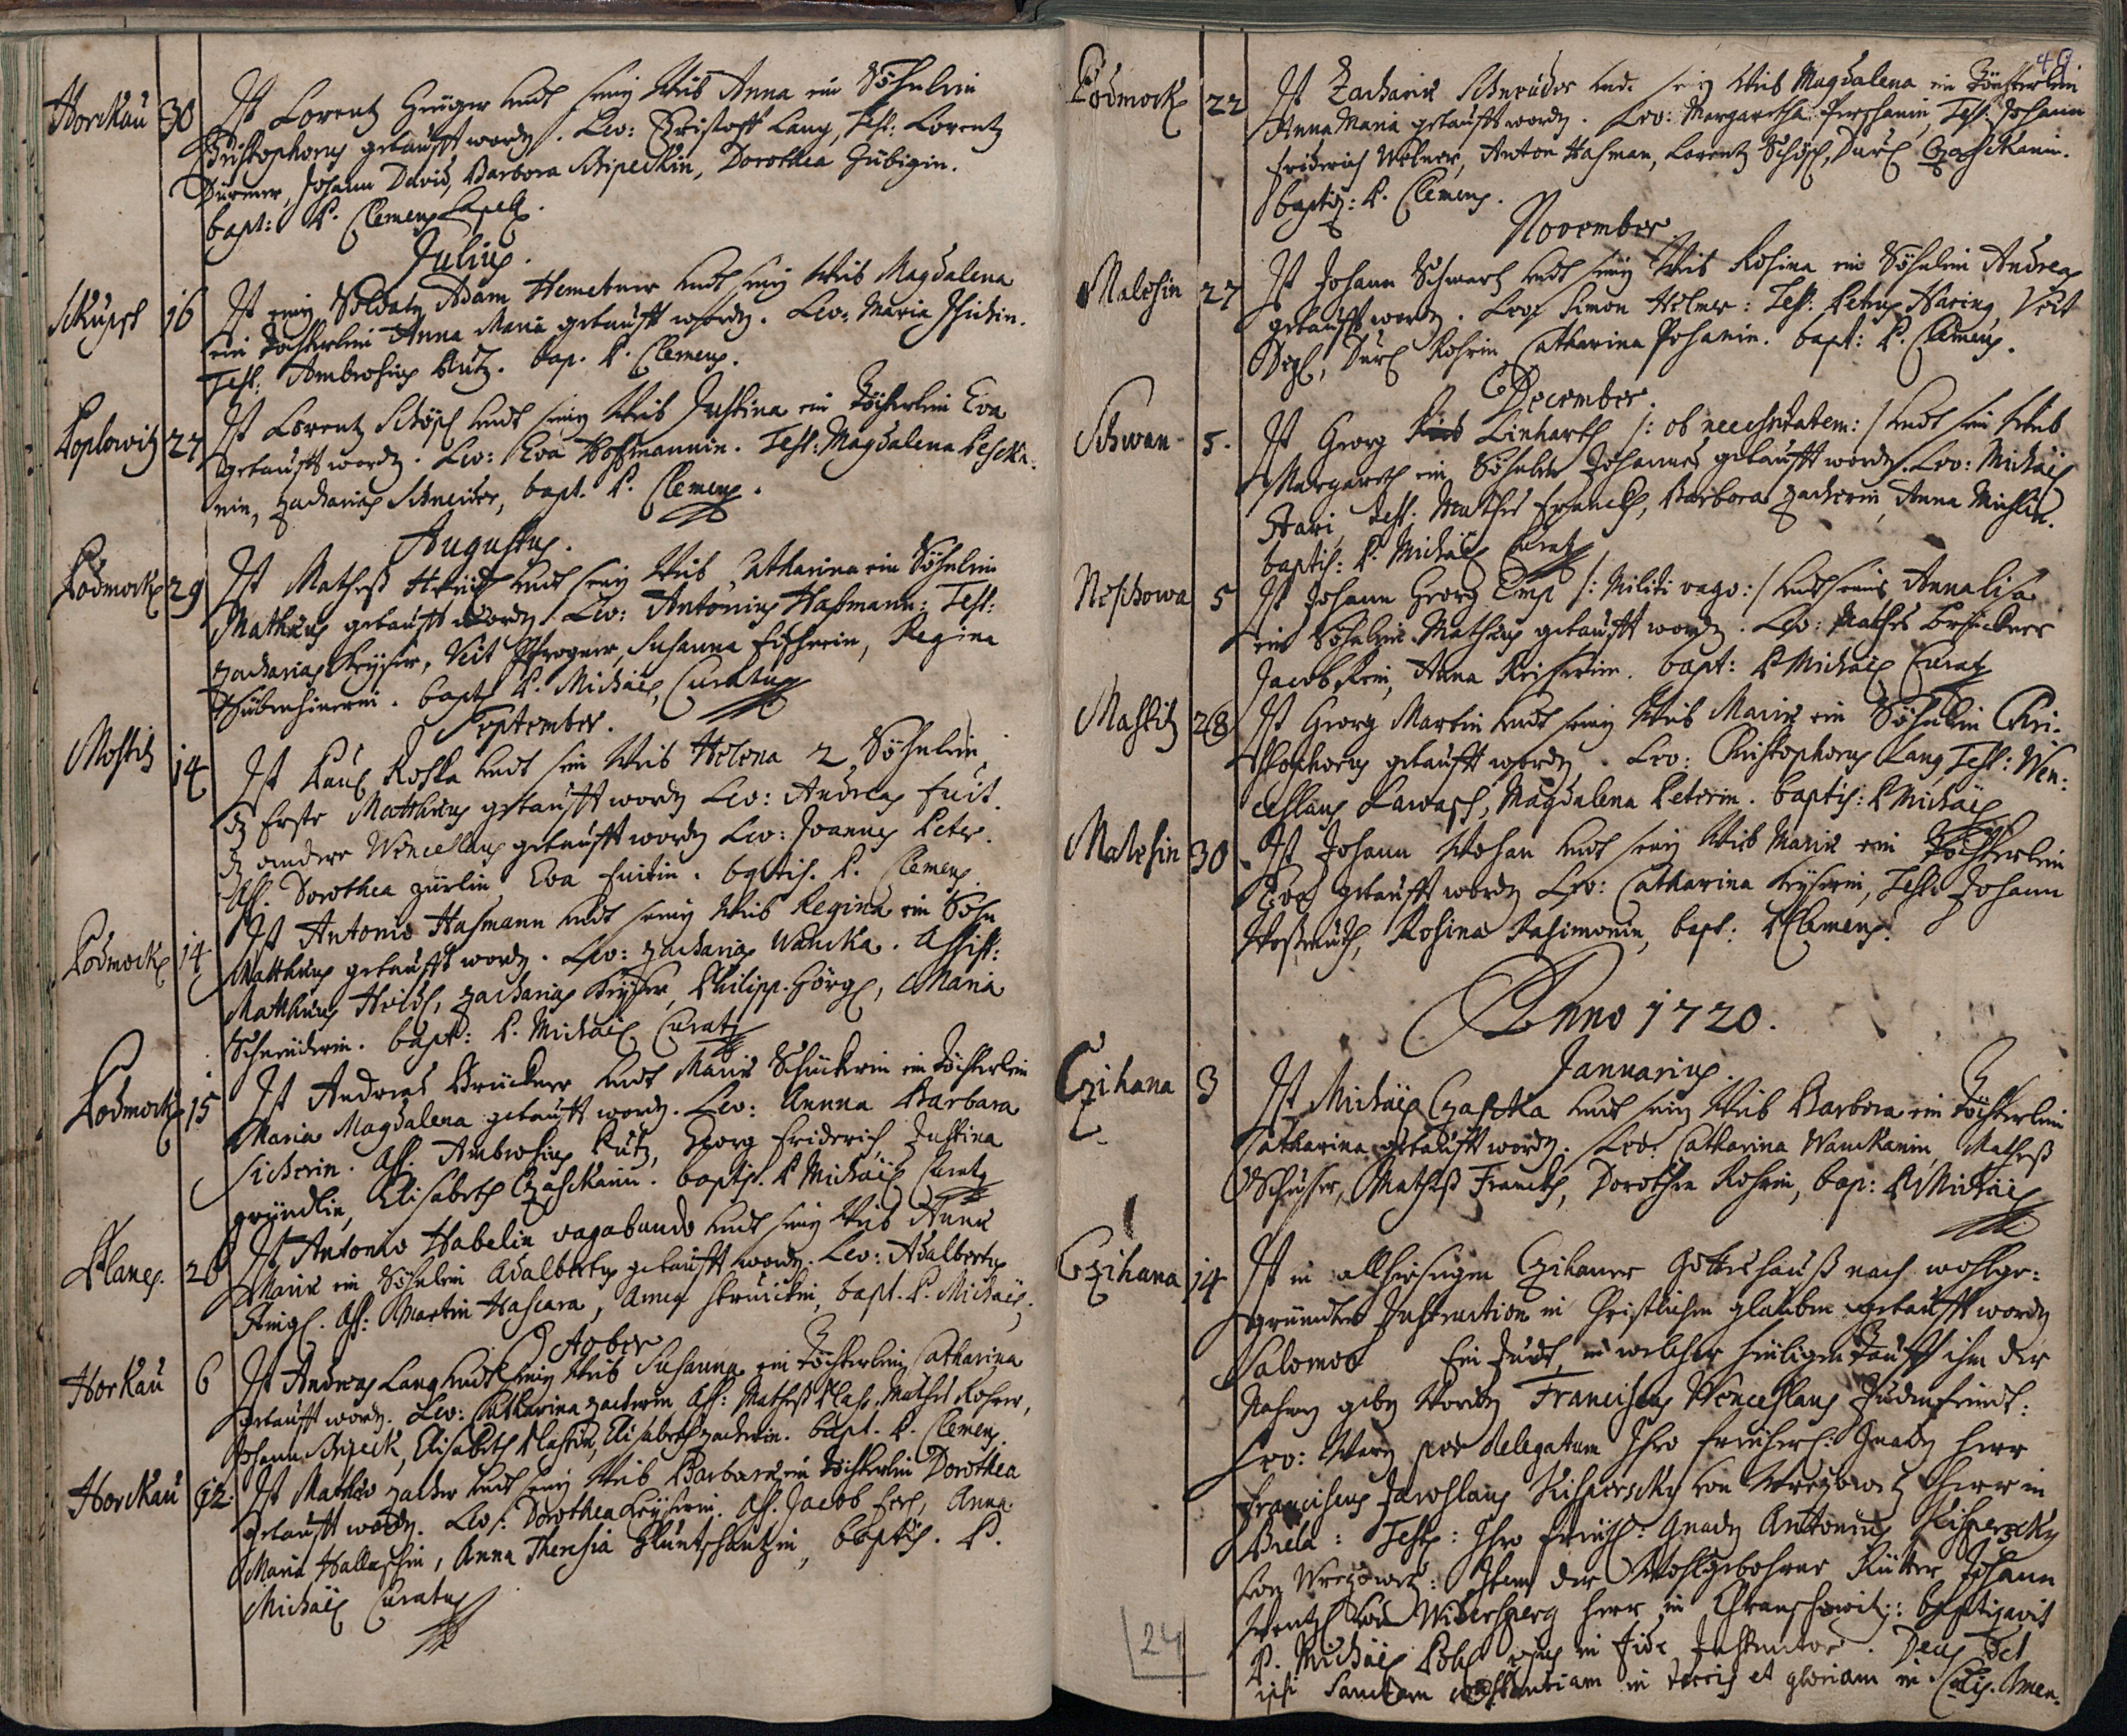 Horckau 30 Ist Lorentz Geuger undt seiny Weib Anna ein Söhnlein
Christophorus getaufft wordn. Lev: Christoff Lang, Test: Lorentz
Johann David, Barbora Schipeckin, Dorothea Hübigin.
bapt: P. Clemens Capell.
Julius.
Skupsch 16 Ist einy Soldatn Adam Hemetner undt seiny Weib Magdalena
ein Tochterlein Anna Maria getaufft wordn. Lev: Maria
Test: Ambrosius Kutz. bap. P. Clemens.
Poplowitz 27 Ist Lorentz Schöpf undt seiny Weib Justina ein Töchterlein Eva
getaufft wordn. Lev: Eva Hoffmannin. Test: Magdalena Peschka-
nin, Zacharias Schneider, bapt. P. Clemens.
Augustus.
Podmock 29 Ist Matheß Heidl undt seiny Weib Catharina ein Söhnlein
Mathæus getaufft wordn. Lev: Antonius Haßmann: Test:
Zacharias Keyser, Veit Pfrogner, Susanna Fischerin, Regina
bapt. P. Michäel Curatus
September.
Mostitz 14 Ist Paul Koska undt sein Weib Helena 2 Söhnlein,
dz Erste Matthæus getaufft wordn Lev: Andreas Fuit.
dz andere Wenceslaus getaufft wordn Lev: Joannes Peter.
Ass. Dorothea Zürlin Eva Fuitin. baptis. P. Clemens.
Podmock 14 Ist Antonio Haßmann undt seiny Weib Regina ein Söhn
Matthæus getaufft wordn. Lev: Zacharias Wancka. Assist:
Matthæus Heidl, Zacharias Keyser, Philipp Görgl, Maria
Schneiderin. bapt: P. Michäel Curatus
Podmock 15 Ist Andreas Brückner undt Maria Schückerin ein Töchterlein
Maria Magdalena getaufft wordn. Lev: Annna Barbara
Sicherin. Ass. Ambrosius Kutz, Georg Friderich, Justina
Gründlin, Elisabeth Czaschkanin. baptis. P. Michäel Curatus
Planes. 26 Ist Antonio Habelin vagabundo undt seiny Weib Anna
Maria ein Söhnlein Adalbertus getaufft wordn. Lev: Adalbertus
Ringl. Ass: Martin Hascara, Anna bapt. P. Michäel,
October
Horkau 6 Ist Andreas Lang undt seiny Weib Susanna ein Töchterlein Catharina
getaufft wordn. Lev: Catharina Zacherin Ass: Matheß Klass, Mathes Rohrer,
Johann Schipeck, Elisabeth Klassin, Elisabeth Zacherin. bapt. P. Clemens.
Horckau 12. Ist Matheo Zacher undt seiny Weib Barbara ein Töchterlein Dorothea
getaufft wordn. Lev: Dorothea Keyserin. Ass. Jacob Anna
Maria Hallaschin, Anna Theresia baptis. P.
Michäel Curatus
49
Podmock 22 Ist Zacharia Schneider undt seiny Weib Magdalena ein Töchterlein
Anna Maria getaufft wordn. Lev: Margaretha Perschanin, Test: Johann
Friderich Welner, Anton Haßman, Lorentz Schöpf, Czaschkanin.
baptiz: P. Clemens.
November
Malesin 27 Ist Johann Schwartz undt seiny Weib Rosina ein Söhnlein Andreas
getaufft wordn. Lev: Simon Helmer: Test: Petrus Haring, Veit
Rohrin Catharina Pohanin. bapt: P. Clemens.
December.
Schwan 5. Ist Georg Linharth /: ob necessitatem :/ undt sein Weib
Margareth ein Söhnlein Johannes getaufft wordn. Lev: Michäel
Stari, Test: Mathes Franckh, Barbora Zacherin, Anna Michlin.
baptis: P. Michäel Curatus
Neschowa 5 Ist Johann Georg Emp /: Militi vago :/ undt seiner Annalisa
ein Söhnlein Mathæus getaufft wordn. Lev: Mathes Brückner
Jacob Anna Keiserin. bapt: P Michäel Curatus
Mastitz 28 Ist Georg Martin undt seiny Weib Maria ein Söhnlein Chri-
stophorus getaufft wordn. Lev: Christophorus Lang, Test: Wen:
ceslaus Lawasch, Magdalena Peterin. baptis: P Michäel
Malesin 30 Ist Johann Wohan undt seiny Weib Maria ein Töchterlein
Eva getaufft wordn Lev: Catharina Keyserin, Test: Johann
Rosina Kasimonin, bapt: P Clemens.
Anno 1720.
Januarius.
Czihana 3 Ist Michäel Czaschka undt seiny Weib Barbora ein Töchterlein
Catharina getaufft wordn. Lev: Catharina Wanckanin, Matheß
Schusser, Matheß Franckh, Dorothea Rohrin, bap: P. Michäel
Czihana 14 Ist in allhiesigen Czihaner Gotteshauß nach wohlge-
gründter Instruction in Christlichen glauben getaufft wordn
Salomon Ein Judt, in welcher heiligen Tauff ihm der
Nahmn gebn wordn Franciscus Wenceslaus Judenfreindt:
Lev: Warn per delegatum Ihro freyherl: Gnadn Herr
Franciscus Jaroslaus Kischpersky von Wrezowitz Herr in
Biela: Test: Ihro freyh: Gnadn Antonius Kischpersky
von Wrezowitz: Item der Wohlgebohrner Ritter Johann
Wentzl von Widersperg Herr in Chranschowitz: baptizavit
P. Michäel Pohl ejus in Fide Instructor. Deus det
ipsi Sanctam constantiam in terris et gloriam in Cælis. Amen.
24